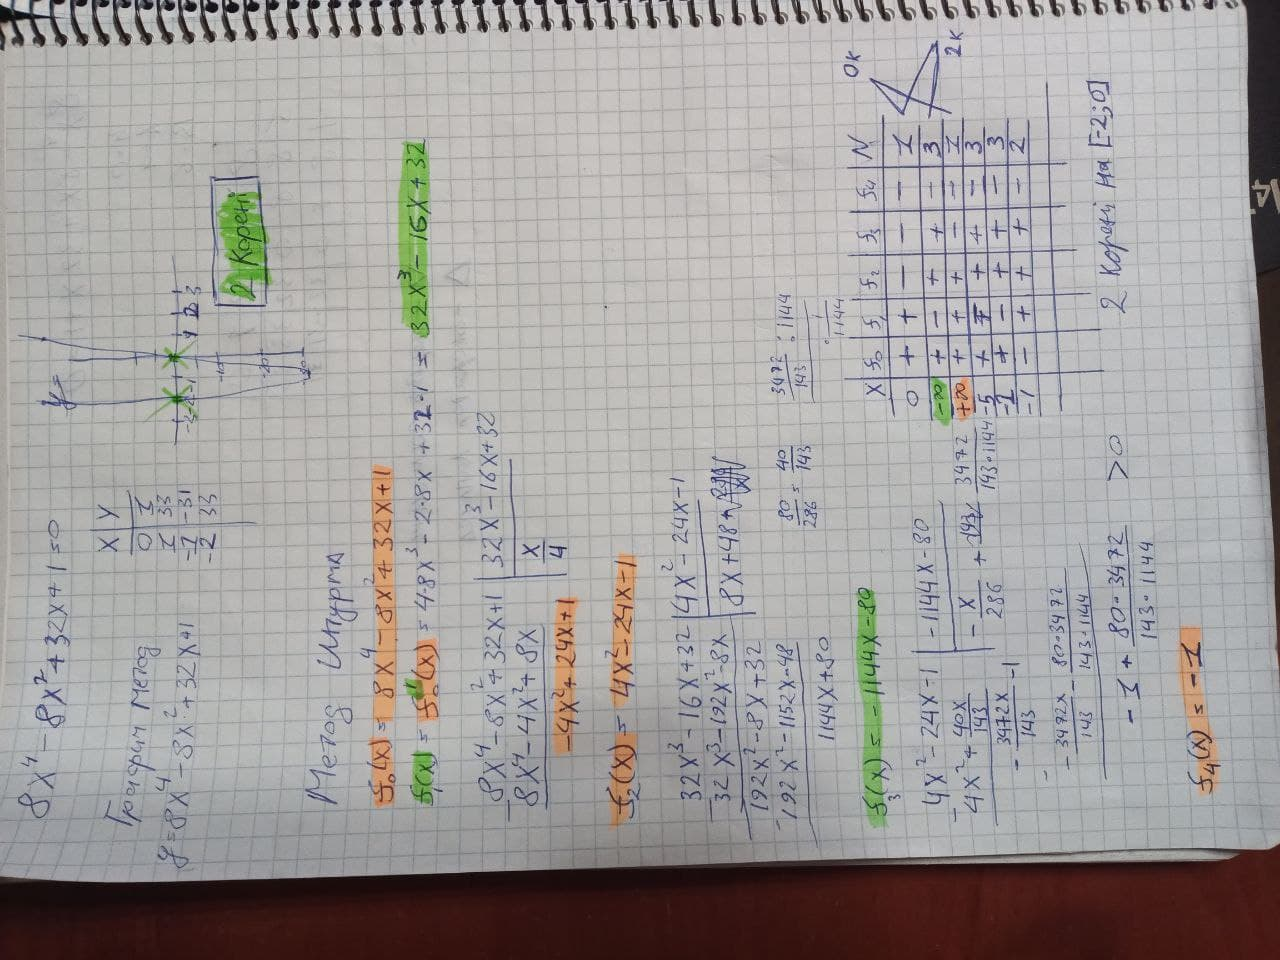 8x⁴ - 8x² + 32x + 1 = 0
Графічн метод
y = 8x⁴ - 8x² + 32x + 1
x | y
0 | 1
1 | 33
-1 | -31
-2 | 33
y =
-3 -2 -1 1 2 3
-10
-20
-30
2 Корені
Метод Штурма
f₀(x) = 8x⁴ - 8x² + 32x + 1
f₁(x) = f₀'(x) = 4·8x³ - 2·8x + 32·1 = 32x³ - 16x + 32
8x⁴ - 8x² + 32x + 1 | 32x³ - 16x + 32
8x⁴ - 4x² + 8x | x/4
-4x² + 24x + 1
f₂(x) = 4x² - 24x - 1
32x³ - 16x + 32 | 4x² - 24x - 1
32x³ - 192x² - 8x | 8x + 48
192x² - 8x + 32
192x² - 1152x - 48
1144x + 80
80/286 = 40/143
3472/143 : 1144
f₃(x) = -1144x - 80
4x² - 24x - 1 | -1144x - 80
4x² + 40x/143 | -x/286 + 3472/143·1144
-3472x/143 - 1
-3472x/143 - 80·3472/143·1144
-1 + 80·3472/143·1144 > 0
f₄(x) = -1
x | f₀ | f₁ | f₂ | f₃ | f₄ | N
0 | + | + | - | - | - | 1
-∞ | + | - | + | + | - | 3
+∞ | + | + | + | - | - | 1
-5 | + | + | + | + | - | 3
-2 | + | - | + | + | - | 3
-1 | - | + | + | + | - | 2
0к
2к
2 Корені на [-2;0]